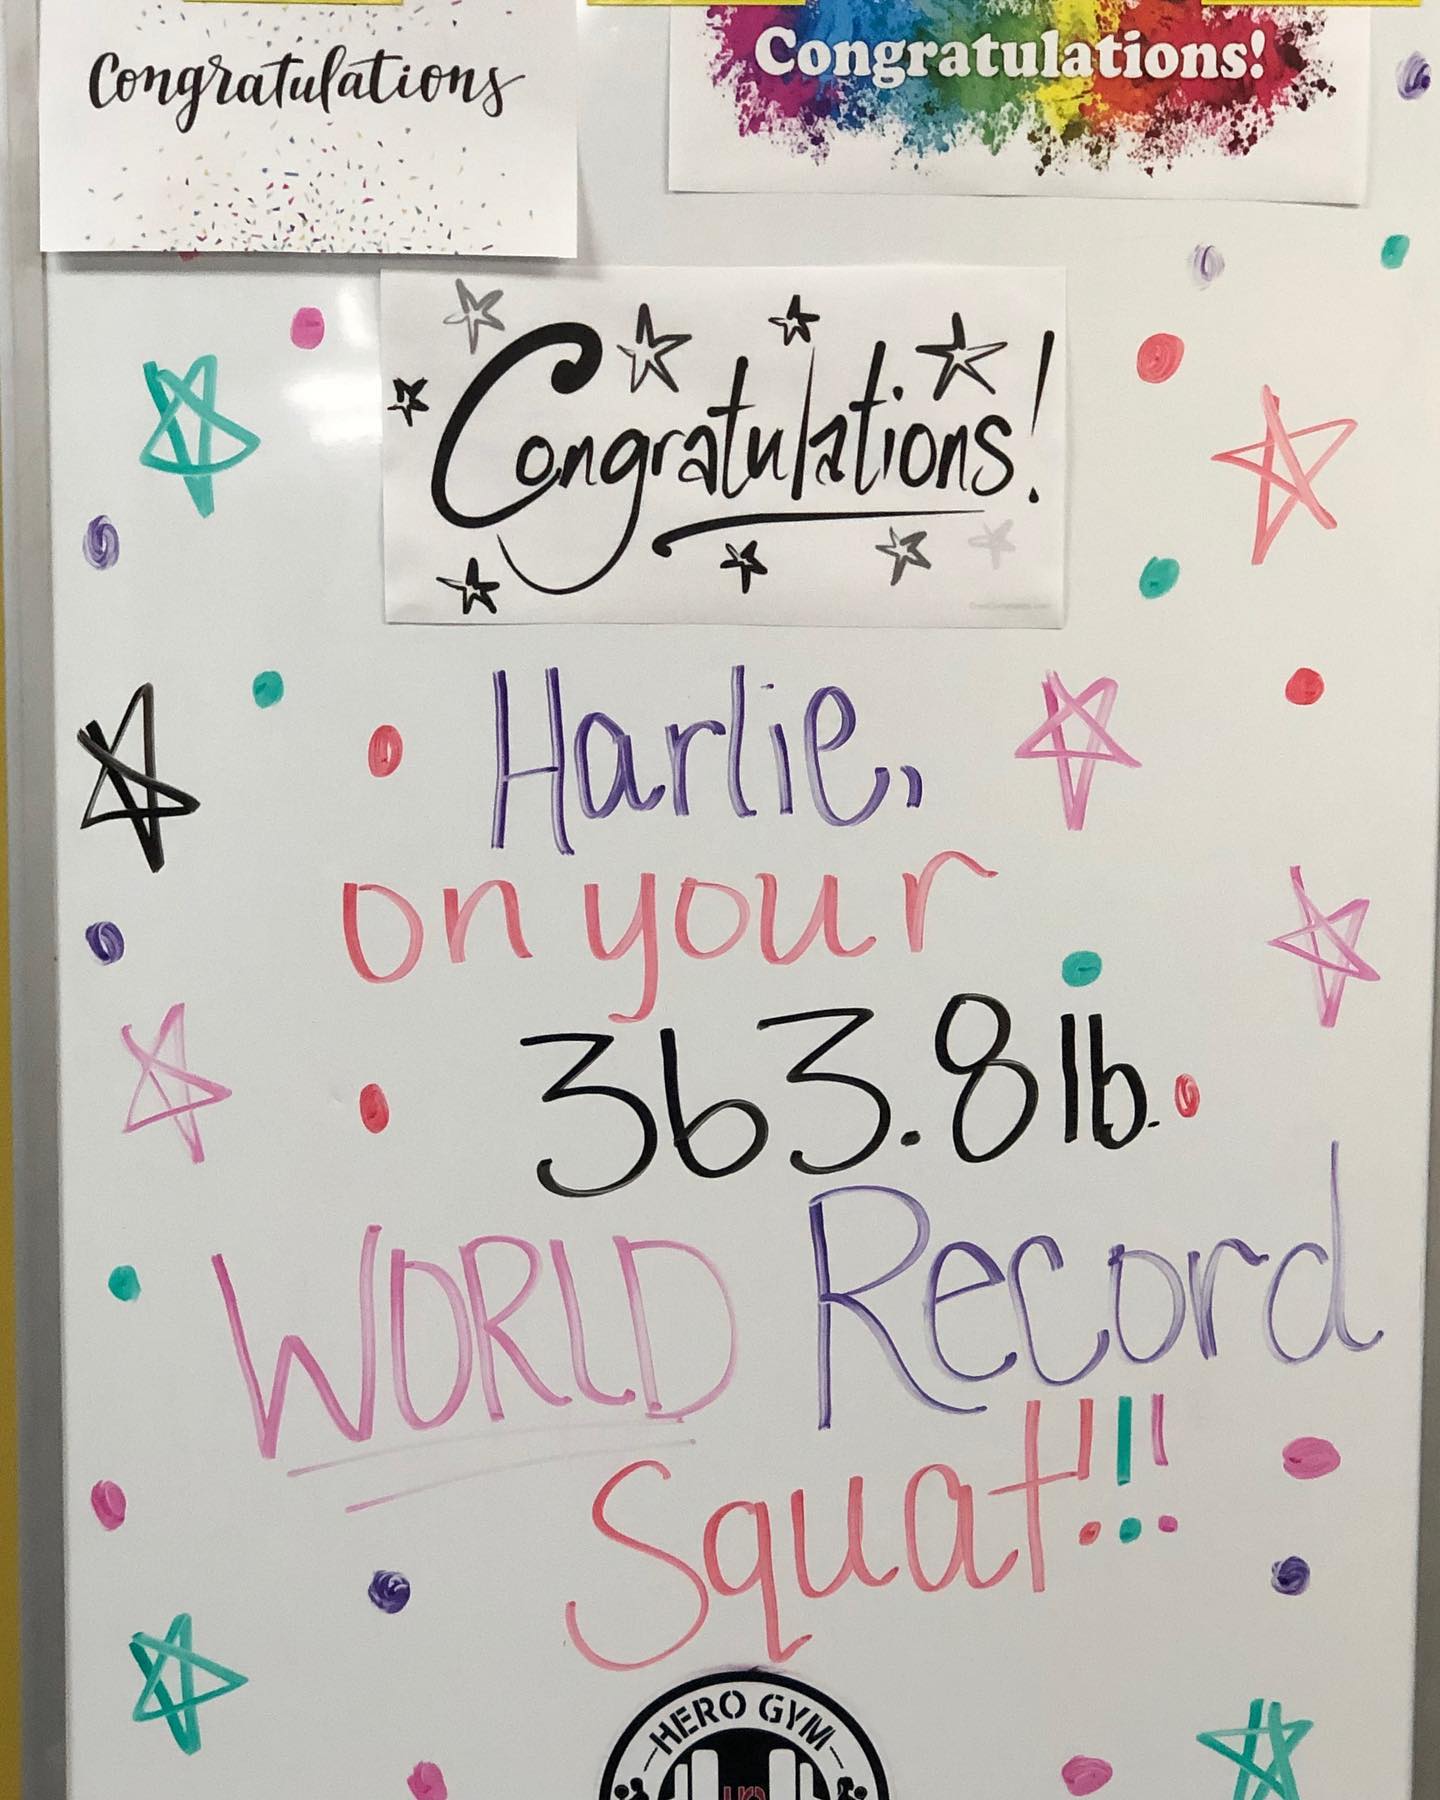 Congratulations
Congratulations!
Congratulations!
Harlie,
on your
363.8 lb.
WORLD Record
Squat!!!
HERO GYM